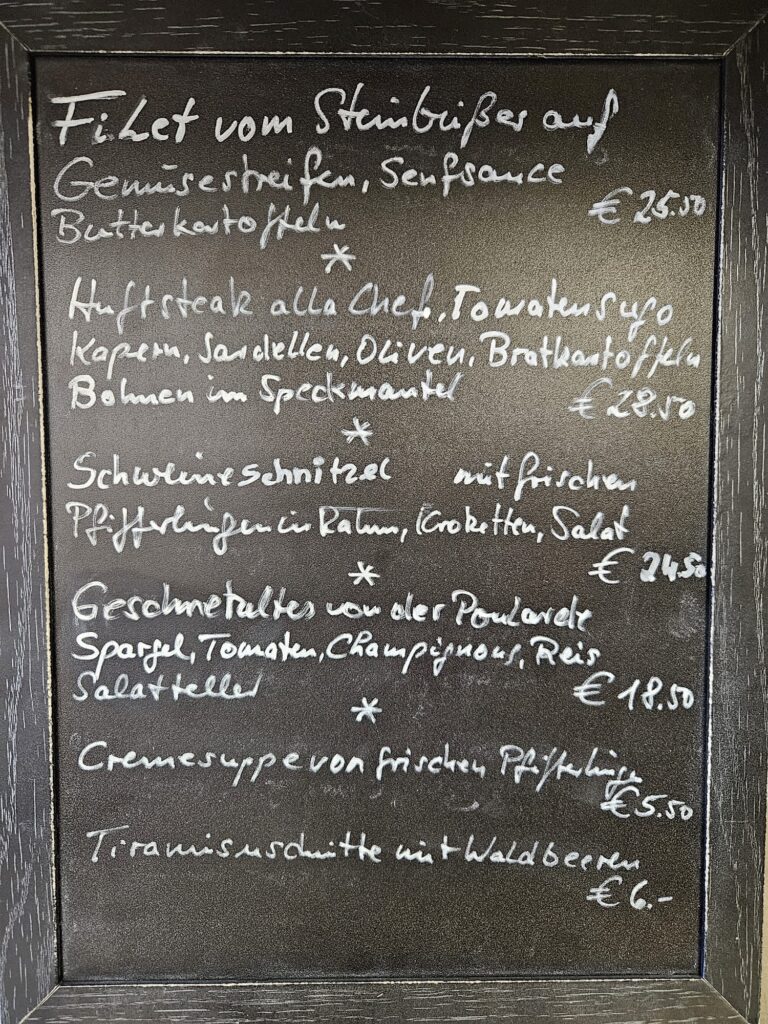 Filet vom Steinbeißer auf
Gemüsestreifen, Senfsauce
€ 25.50
Butterkartoffeln
*
Huftsteak alla Chef, Tomatensugo
Kapern, Sardellen, Oliven, Bratkartoffeln
Bohnen im Speckmantel € 28.50
*
Schweineschnitzel mit frischen
Pfifferlingen in Rahm, Kroketten, Salat
€ 24.50
*
Geschnetzeltes von der Poularde
Spargel, Tomaten, Champignons, Reis
Salatteller € 18.50
*
Cremesuppe von frischen Pfifferlinge
€ 5.50
Tiramisuschnitte mit Waldbeeren
€ 6.-